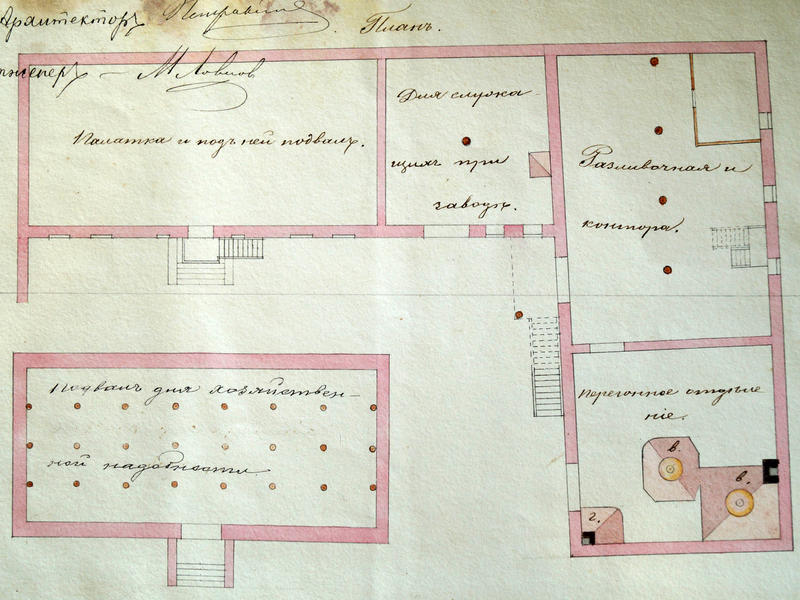 Архитекторъ Петровскій
Планъ.
нженеръ – М Ловцов
Палатка и подъ ней подвалъ.
Для служа-
щихъ при
заводѣ.
Разливочная и
контора.
Подвалъ для хозяйствен-
ной надобности.
Перегонное отдѣле
ніе.
в.
в.
г.